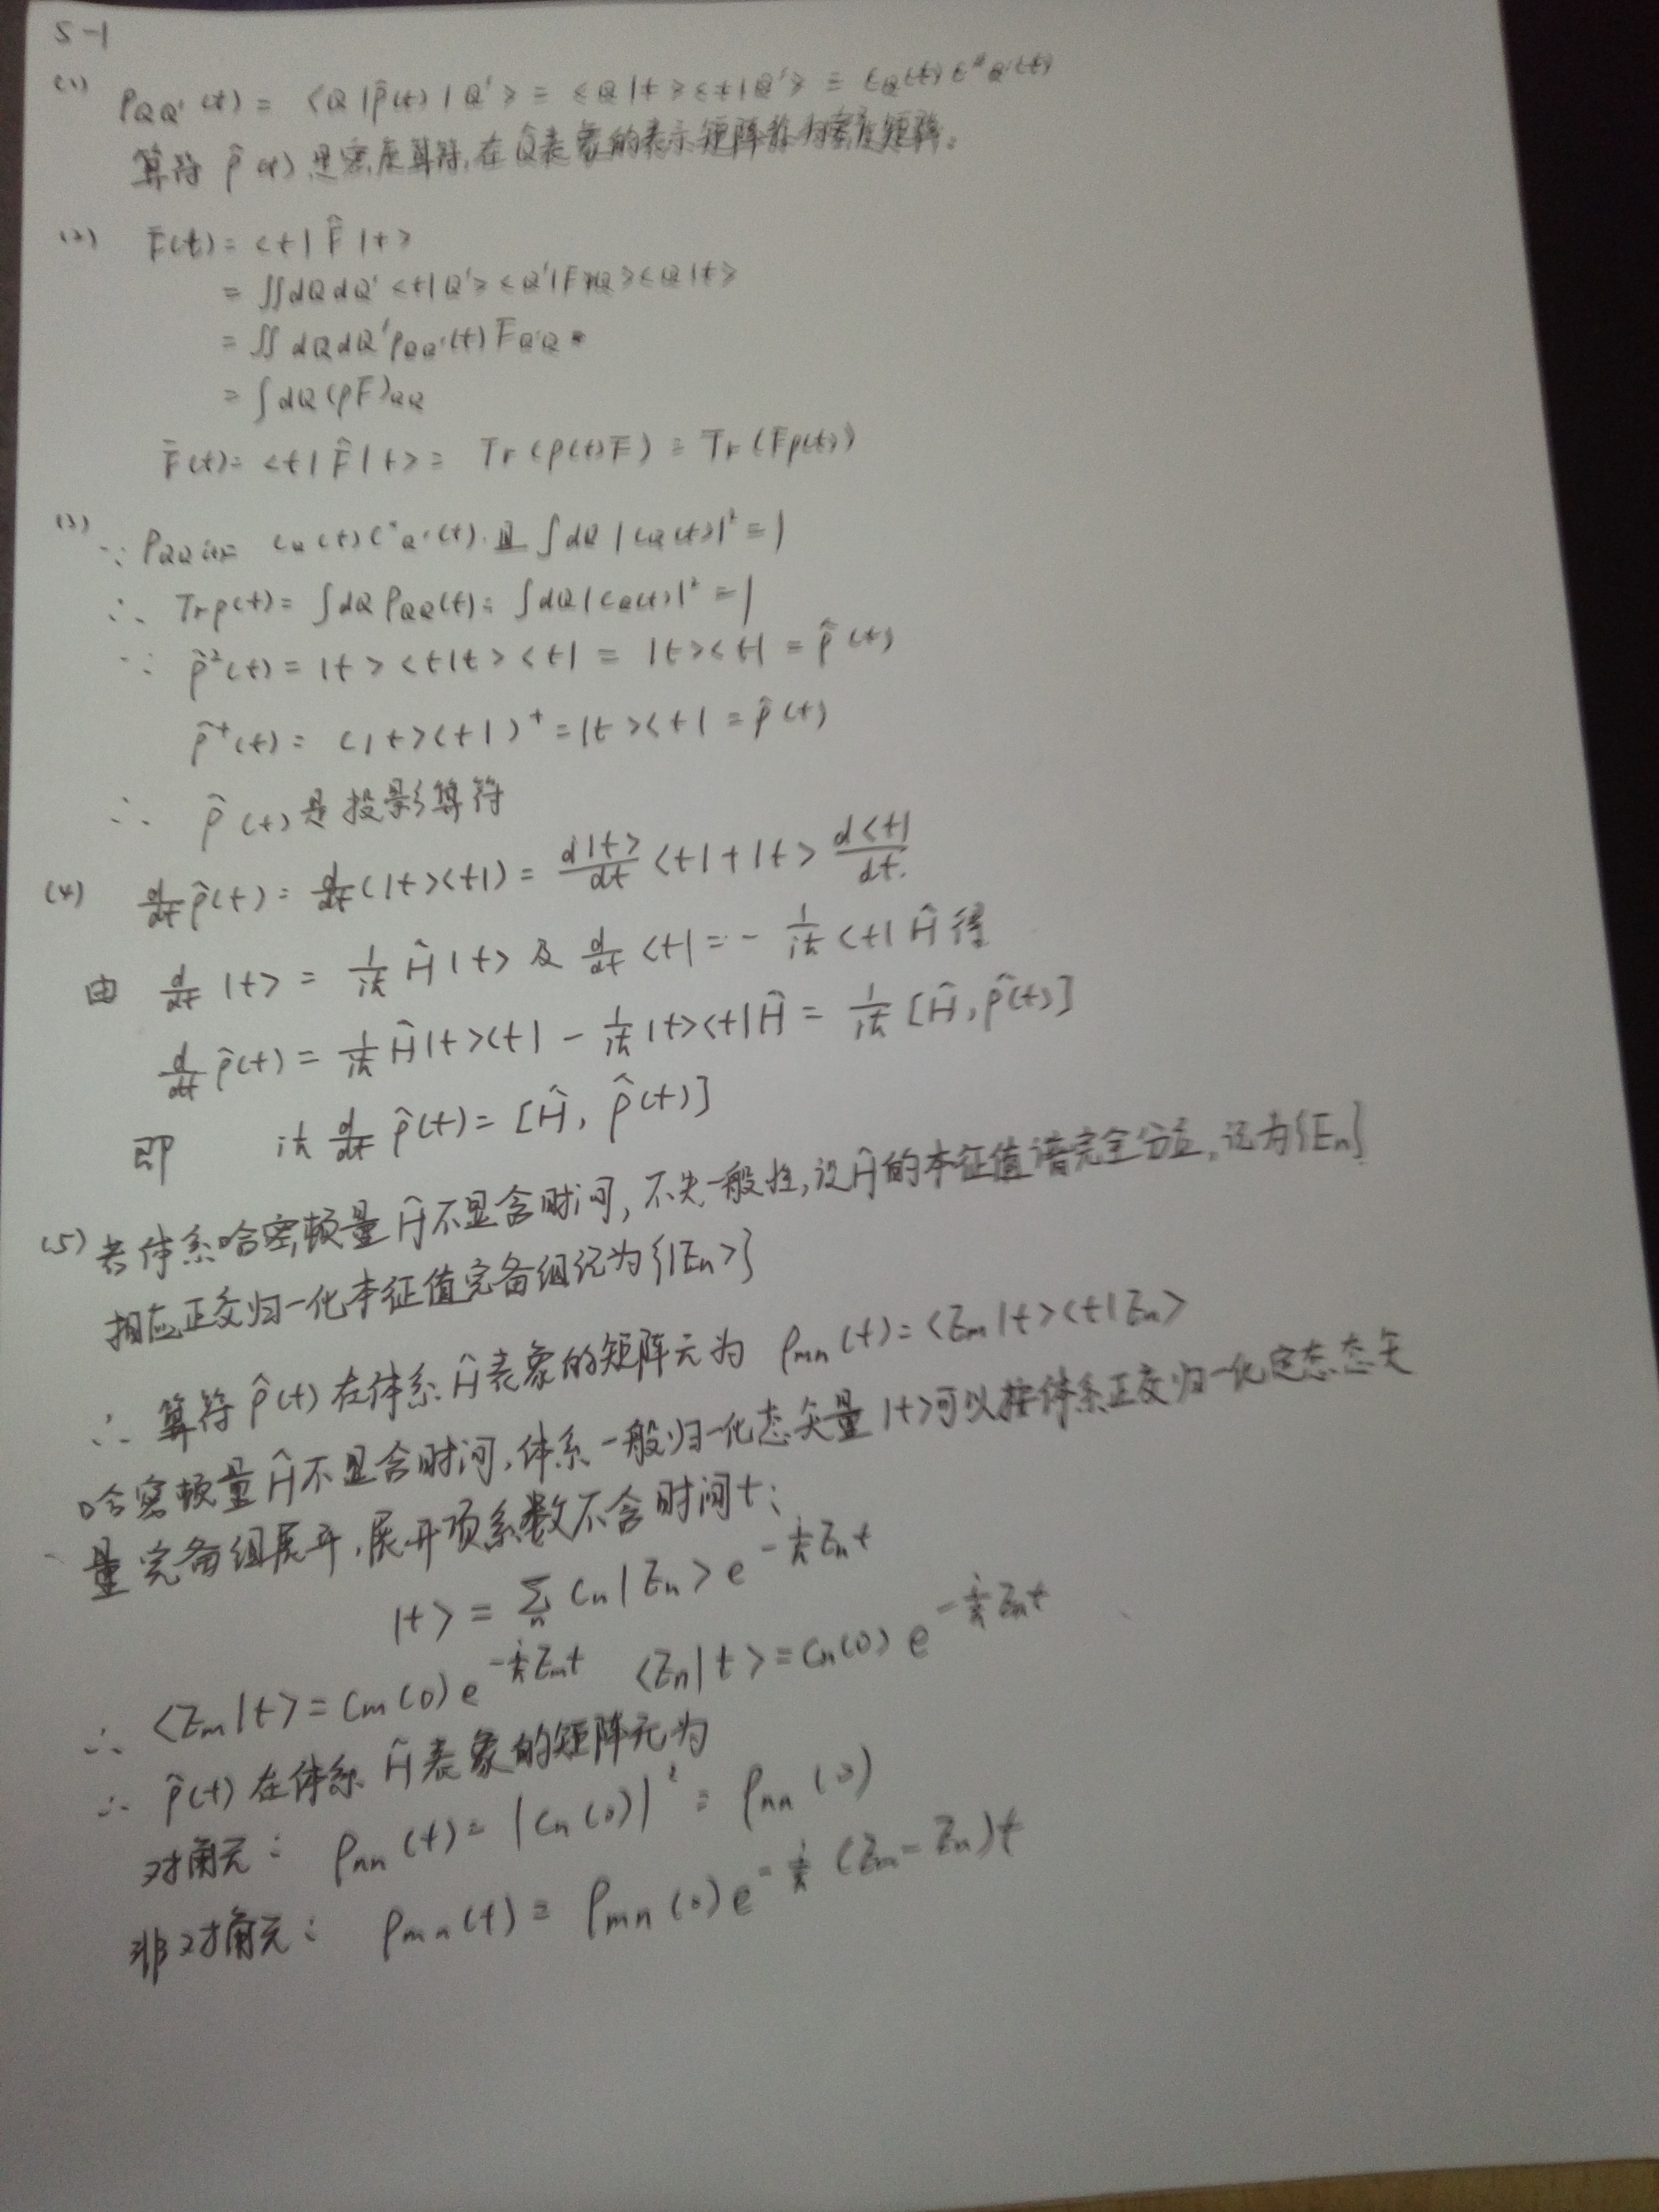 5-1
(1) ρQQ'(t) = <Q|ρ̂(t)|Q'> = <Q|t><t|Q'> = CQ(t)C*Q'(t)
算符 ρ̂(t) 是密度算符,在Q̂表象的表示矩阵称为密度矩阵。
(2) F̄(t) = <t|F̂|t>
= ∬dQdQ'<t|Q'><Q'|F̂|Q><Q|t>
= ∬dQdQ'ρQQ'(t)FQ'Q
= ∫dQ(ρF)QQ
F̄(t) = <t|F̂|t> = Tr(ρ(t)F) = Tr(Fρ(t))
(3) ∵ ρQQ'(t) = CQ(t)C*Q'(t) 且 ∫dQ|CQ(t)|² = 1
∴ Trρ(t) = ∫dQρQQ(t) = ∫dQ|CQ(t)|² = 1
∵ ρ̂²(t) = |t><t|t><t| = |t><t| = ρ̂(t)
ρ̂⁺(t) = (|t><t|)⁺ = |t><t| = ρ̂(t)
∴ ρ̂(t)是投影算符
(4) d/dt ρ̂(t) = d/dt(|t><t|) = d|t>/dt <t| + |t> d<t|/dt
由 d/dt |t> = 1/iħ Ĥ|t> 及 d/dt <t| = - 1/iħ <t|Ĥ 得
d/dt ρ̂(t) = 1/iħ Ĥ|t><t| - 1/iħ |t><t|Ĥ = 1/iħ [Ĥ, ρ̂(t)]
即 iħ d/dt ρ̂(t) = [Ĥ, ρ̂(t)]
(5) 若体系哈密顿量Ĥ不显含时间,不失一般性,设Ĥ的本征值谱完全分立,记为{En}
相应正交归一化本征值完备组记为{|En>}
∴ 算符ρ̂(t)在体系Ĥ表象的矩阵元为 ρmn(t) = <Em|t><t|En>
哈密顿量Ĥ不显含时间,体系一般归一化态矢量|t>可以按体系正交归一化定态态矢
量完备组展开,展开项系数不含时间t:
|t> = Σn Cn|En> e^{-i/ħ Ent}
∴ <Em|t> = Cm(0) e^{-i/ħ Emt} <En|t> = Cn(0) e^{-i/ħ Ent}
∴ ρ̂(t)在体系Ĥ表象的矩阵元为
对角元: ρnn(t) = |Cn(0)|² = ρnn(0)
非对角元: ρmn(t) = ρmn(0)e^{-i/ħ (Em-En)t}